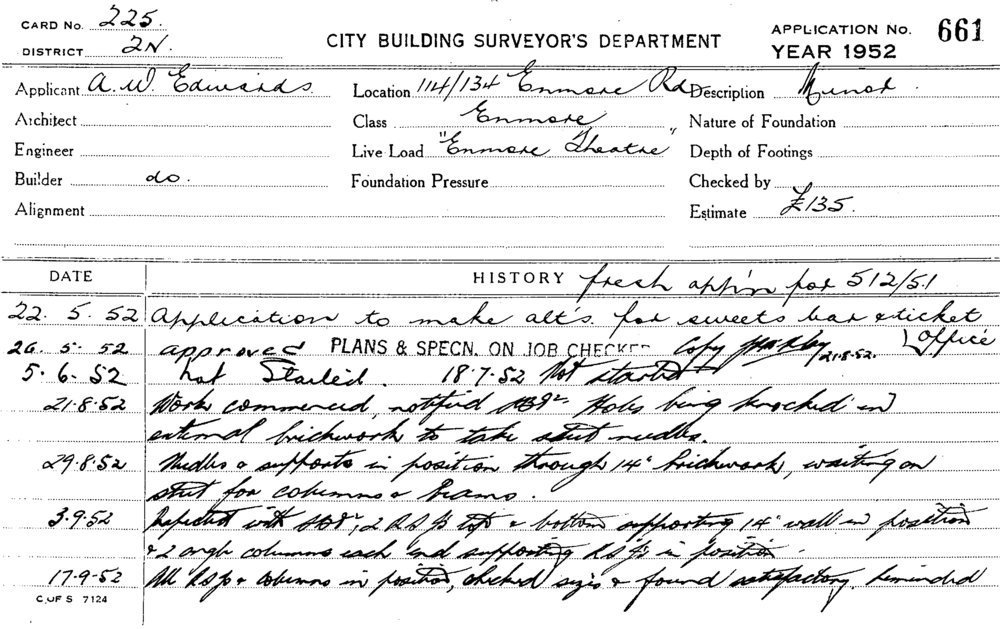 CARD No. 225.
DISTRICT 2N.
CITY BUILDING SURVEYOR'S DEPARTMENT
APPLICATION No. 661
YEAR 1952
Applicant A. W. Edwards Location 114/134 Enmore Rd Description Minor
Architect Class Enmore Nature of Foundation
Engineer Live Load "Enmore Theatre" Depth of Footings
Builder do. Foundation Pressure Checked by
Alignment Estimate £135.
DATE HISTORY fresh app'n for 512/51
22. 5. 52 Application to make alt's. for sweets bar & ticket
office
26. 5. 52 approved PLANS & SPECN. ON JOB CHECKED Copy 21.8.52.
5. 6. 52 Not Started. 18.7.52 Not started
21.8.52 Work commenced, notified Holes being knocked in
external brickwork to take needles.
29.8.52 Needles & supports in position through 14" brickwork, waiting on
for columns & beams.
3.9.52 with 2 R.S.Js top & bottom supporting 14" wall in position
& 2 angle columns each end supporting R.S.J's in position.
17-9-52 All R.S.Js & columns in position, checked sizes & found satisfactory. Reminded
C OF S 7124